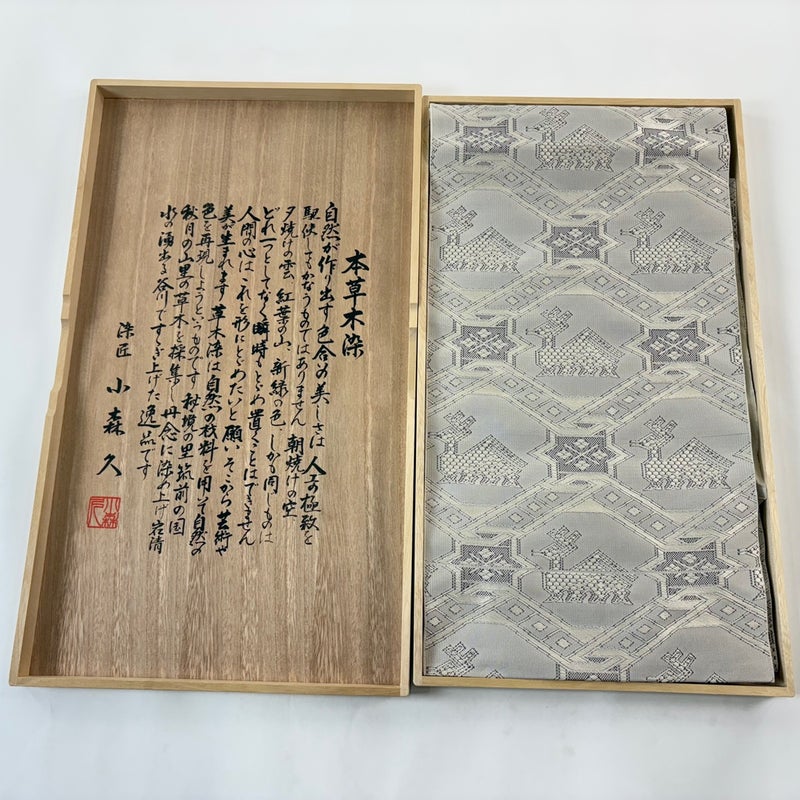 本草木染
自然が作り出す色合の美しさは人工の極致を
駆使してもかなうものではありません 朝焼けの空
夕焼けの雲 紅葉の山、新緑の色、しかも同じものは
どれ一つとしてなく瞬時もとどめ置くことはできません
人間の心は、これを形にとどめたいと願いそこから芸術や
美が生まれます 草木染は自然の材料を用いて自然の
色を再現しようというものです 秘境の里筑前の国
秋月の山里の草木を採集し丹念に染め上げ岩清
水の湧出る谷川ですすぎ上げた逸品です
染匠 小森久